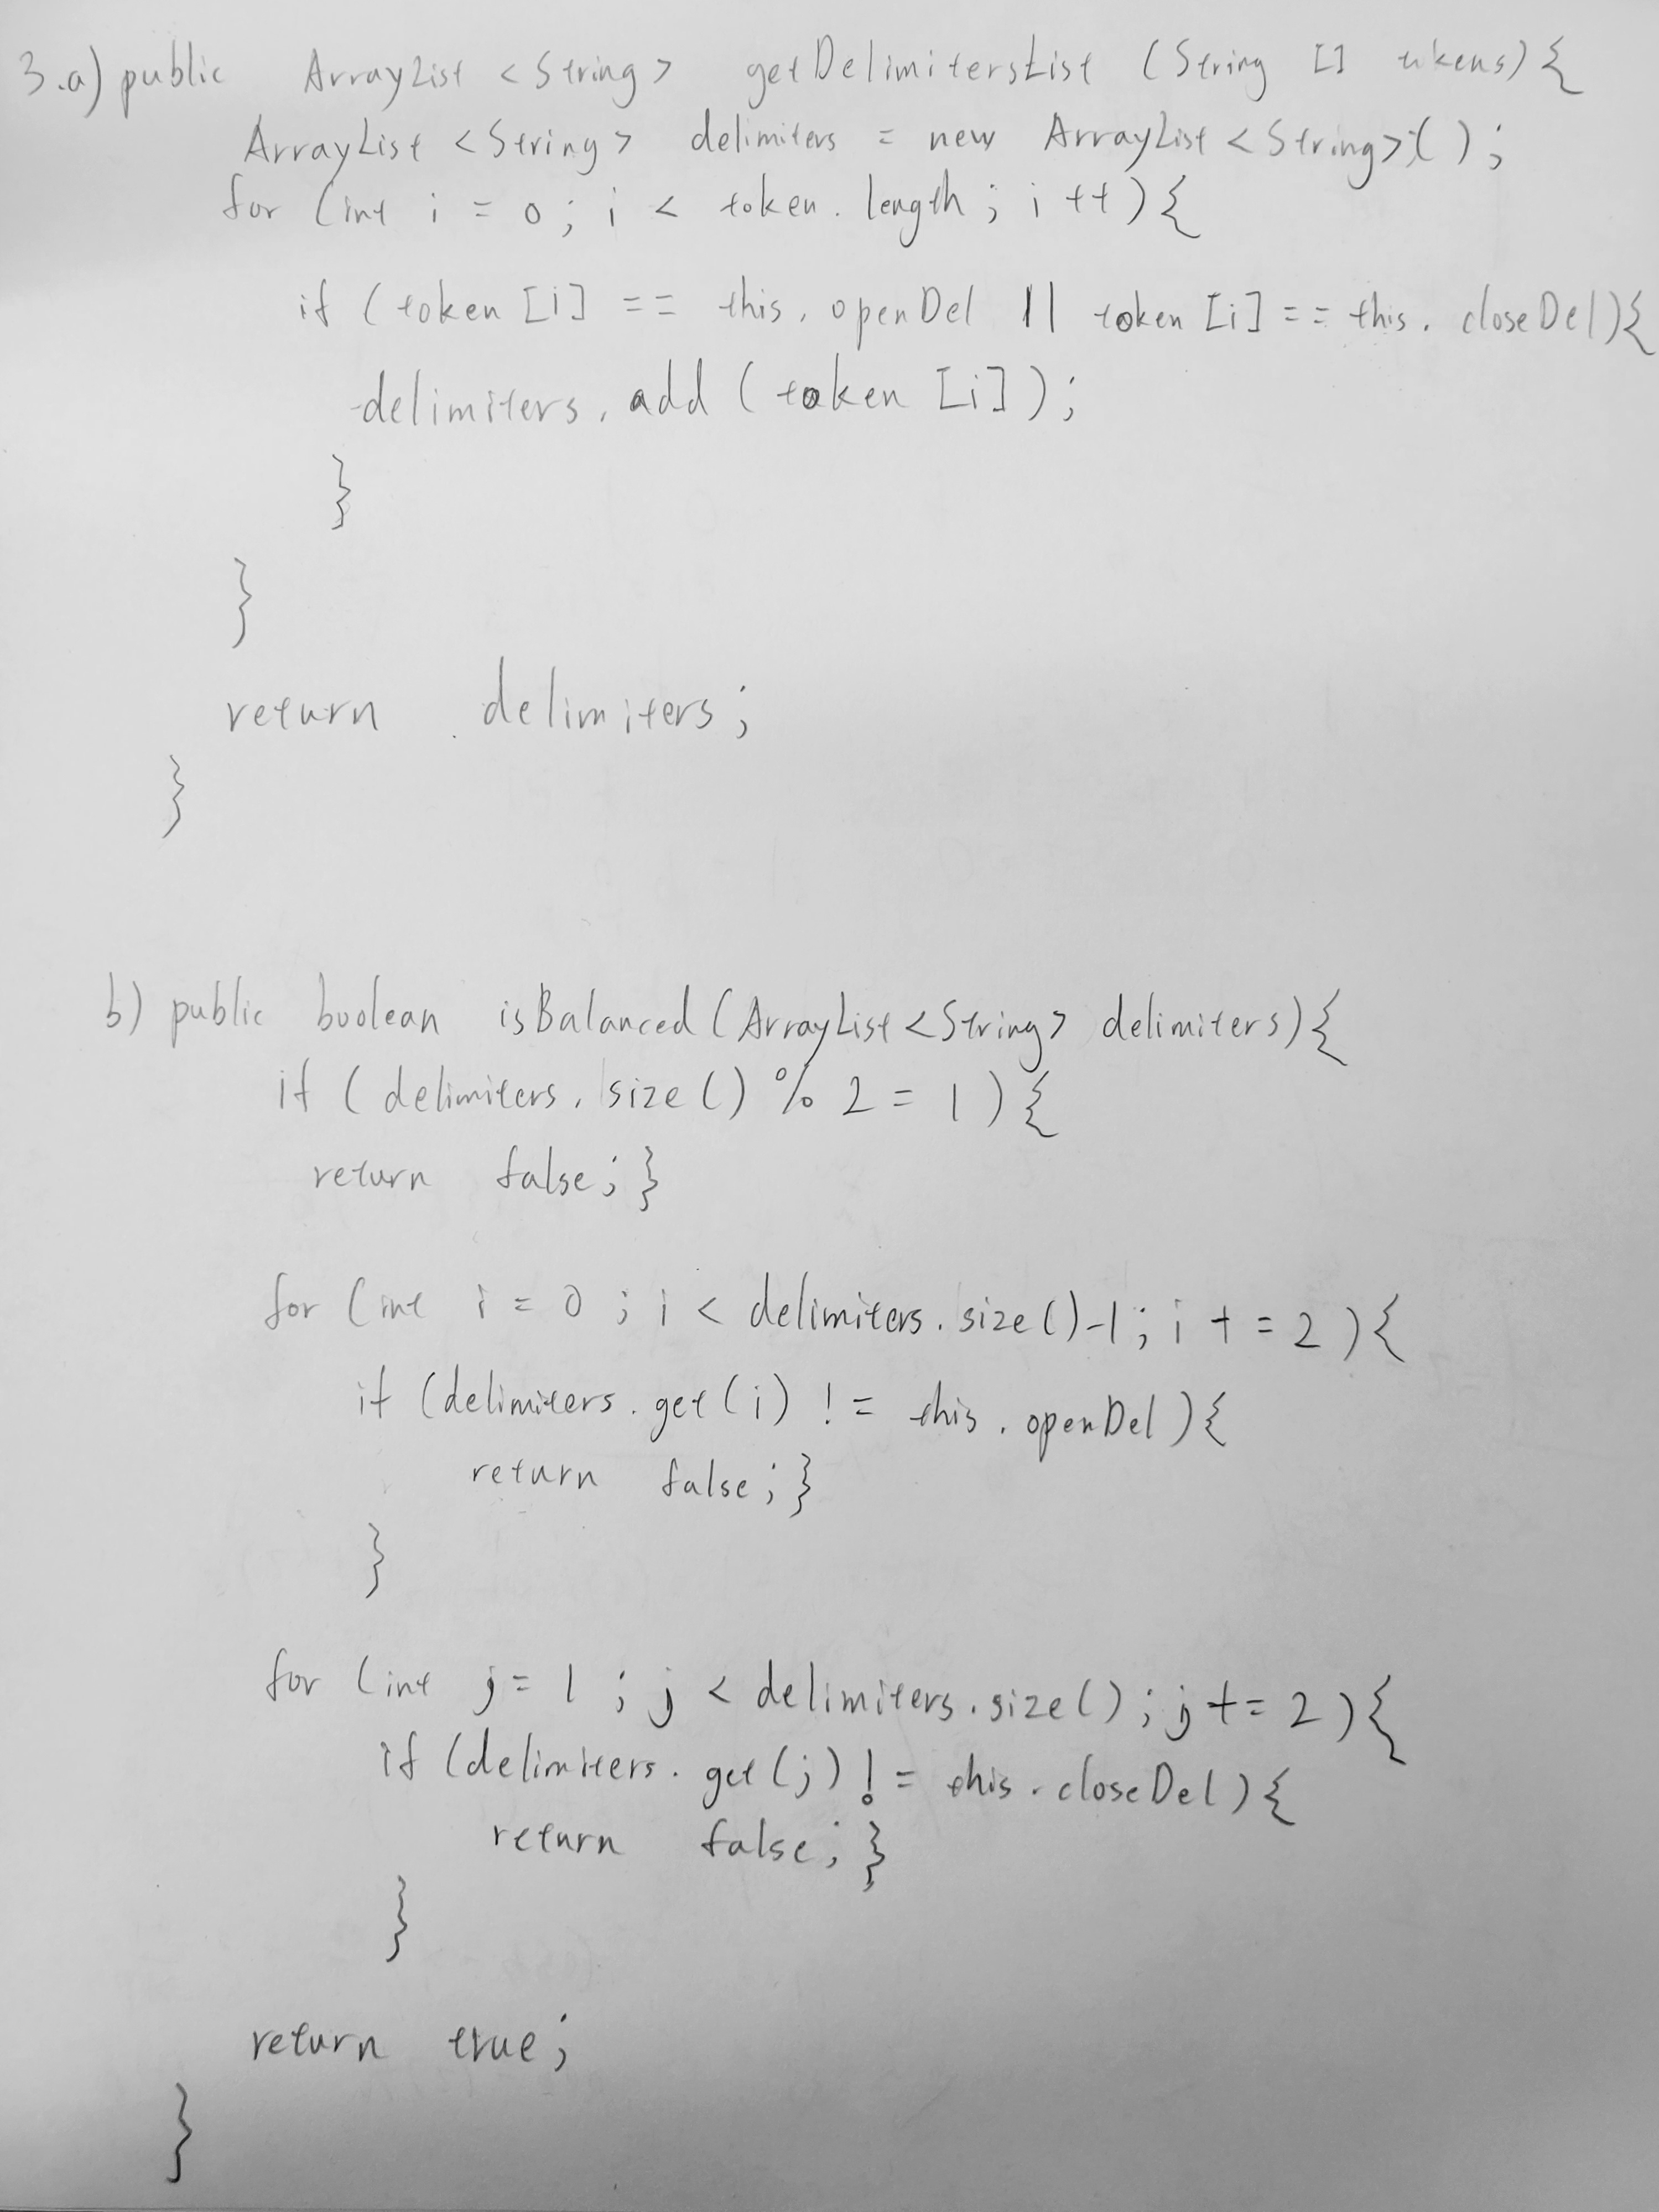 3.a) public ArrayList <String> getDelimitersList (String [] tokens){
ArrayList <String> delimiters = new ArrayList <String>();
for (int i = 0; i < token. length; i ++){
if (token [i] == this. openDel || token [i] == this. closeDel){
delimiters. add (token [i]);
}
}
return delimiters;
}
b) public boolean isBalanced (ArrayList <String> delimiters){
if (delimiters. size () % 2 = 1){
return false; }
for (int i = 0; i < delimiters. size ()-1; i += 2){
if (delimiters. get (i) != this. openDel){
return false; }
}
for (int j = 1; j < delimiters. size (); j += 2){
if (delimiters. get (j) != this. closeDel){
return false; }
}
return true;
}